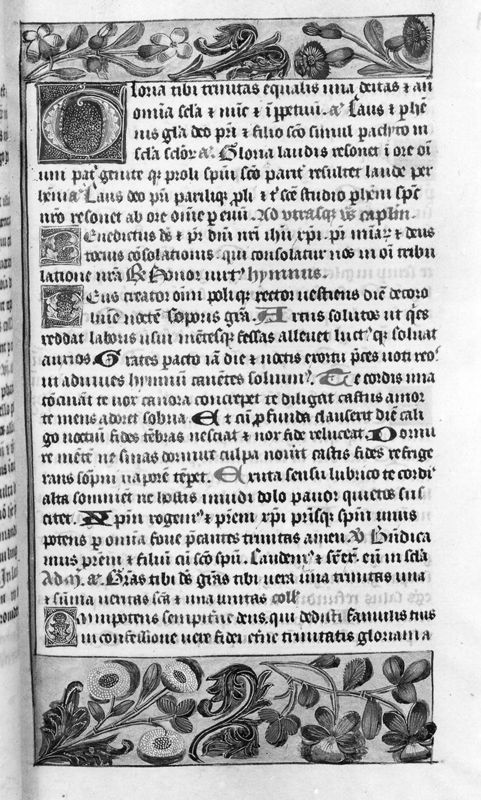 Gloria tibi trinitas equalis una deitas & añ
omnia scła & nũc & ĩ ppetuũ. añ Laus & phẽ
nis gła deo pri & filio scõ simul paclyto in
scła sclor. añ Gloria laudis resonet ĩ ore oĩ
um pat' genite qʒ proli spũi scõ parit' resultet laude per
henni añ Laus deo pri pariliqʒ pli & t' scẽ studio phẽni spẽ
nro resonet ab ore oĩne p euũ. Ad utrasqʒ vs caplm.
Benedictus ds & pr dñi nrĩ ihũ xpĩ. pr miãr & deus
tocius cõsolationis. qui consolatur nos in oĩ tribu
latione nrã R Honor virt' hymnus.
Deus creator oĩm poliqʒ rector vestiens diẽ decoro
lumĩe noctẽ soporis grã. Artus solutos ut qes
reddat laboris usui mẽtesqʒ fessas allevet luct'qʒ solvat
anxios Grates pacto iã die & noctis exortu pces voti reos
ut adiuves hymnũ canẽtes solvim' Te cordis ima
cõcinãt te vox canora concrepet te diligat castus amor
te mens adoret sobria. Et cũ pfunda clauserit diẽ cali
go noctiũ fides tẽbras nesciat & nox fide reluceat. Dormi
re mẽtẽ ne sinas dormire culpa noverit castis fides refrige
rans sõpni vaporẽ tẽpet. Exuta sensu lubrico te cordis
alta somnient ne hostis invidi dolo pavor quietos sus
citet. Xpm rogem' & prẽm xpi prĩsqʒ spũm unus
potens p omnia fove pcantes trinitas amen. V Bñdica
mus prẽm & filiũ cũ scõ spũ. Laudem' & sup.. eũ in scła
Ad M. añ Grãs tibi ds grãs tibi vera una trinitas una
& sũma veritas scã & una unitas collẽ
Omnipotens sempitne deus. qui dedisti famulis tuis
in confessione vere fidei etne trinitatis gloriam a